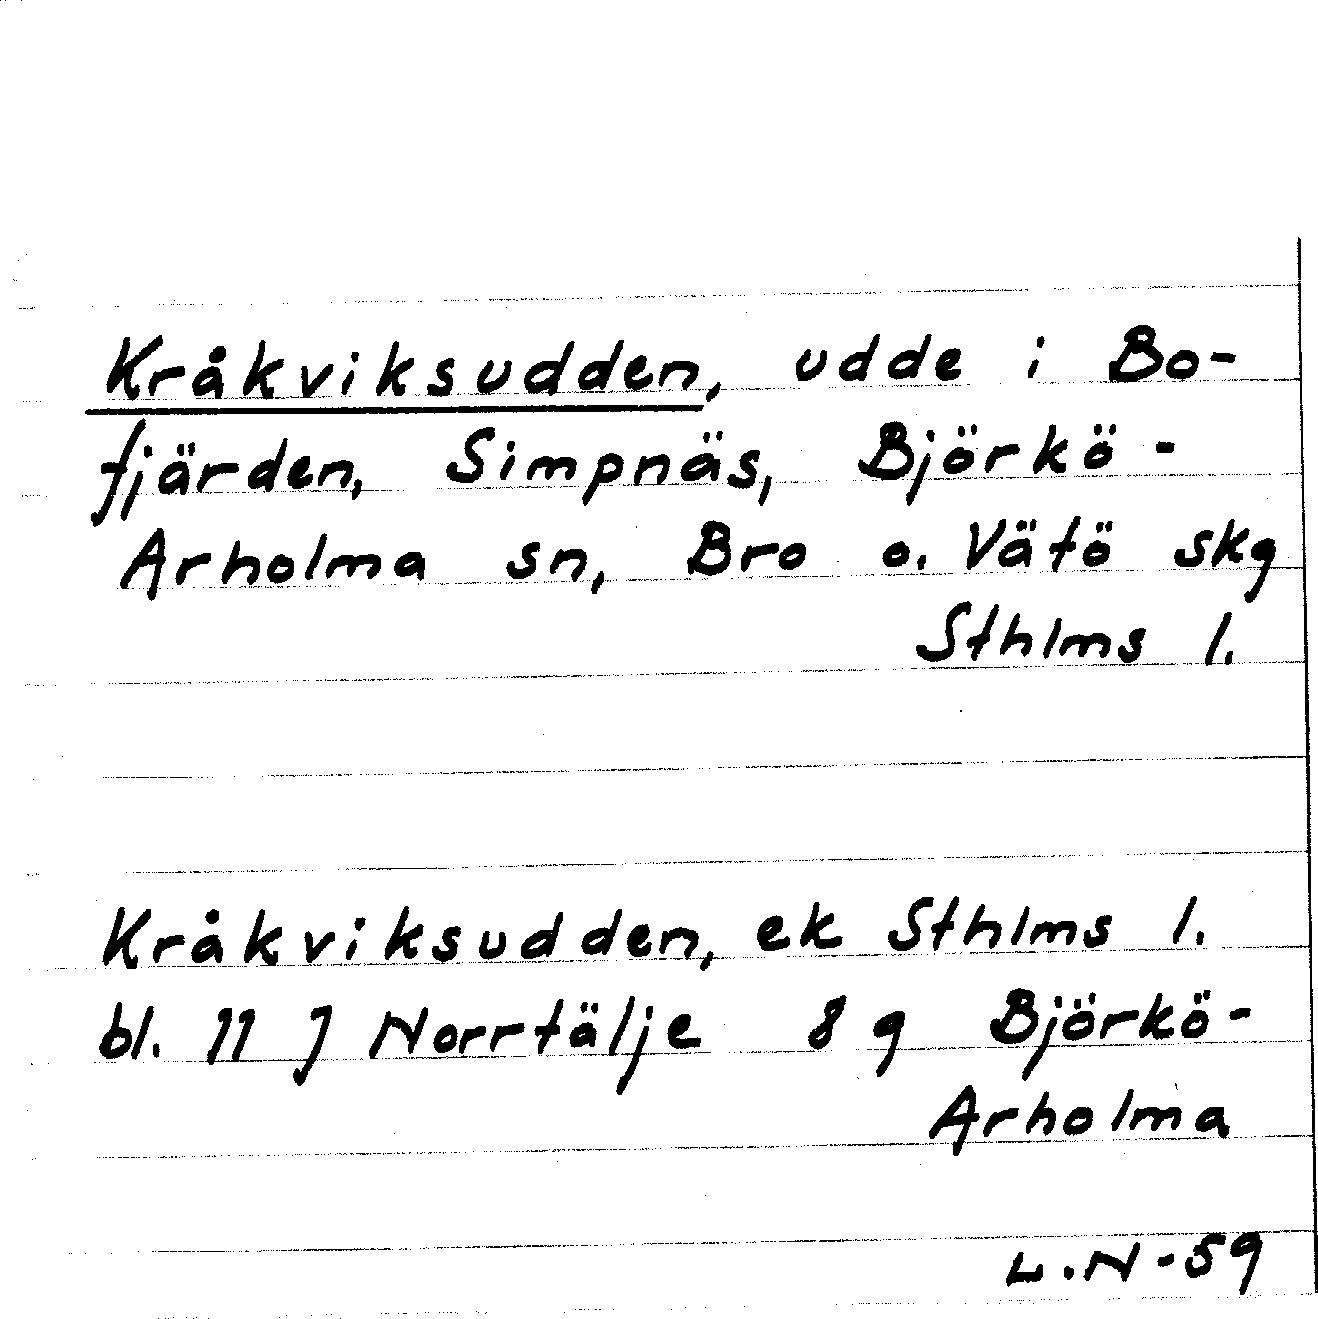 Kråkviksudden, udde i Bo-
fjärden, Simpnäs, Björkö-
Arholma sn, Bro o. Vätö skg
Sthlms l.
Kråkviksudden, ek Sthlms l.
bl. 11 J Norrtälje 8 g Björkö-
Arholma
L.N-59